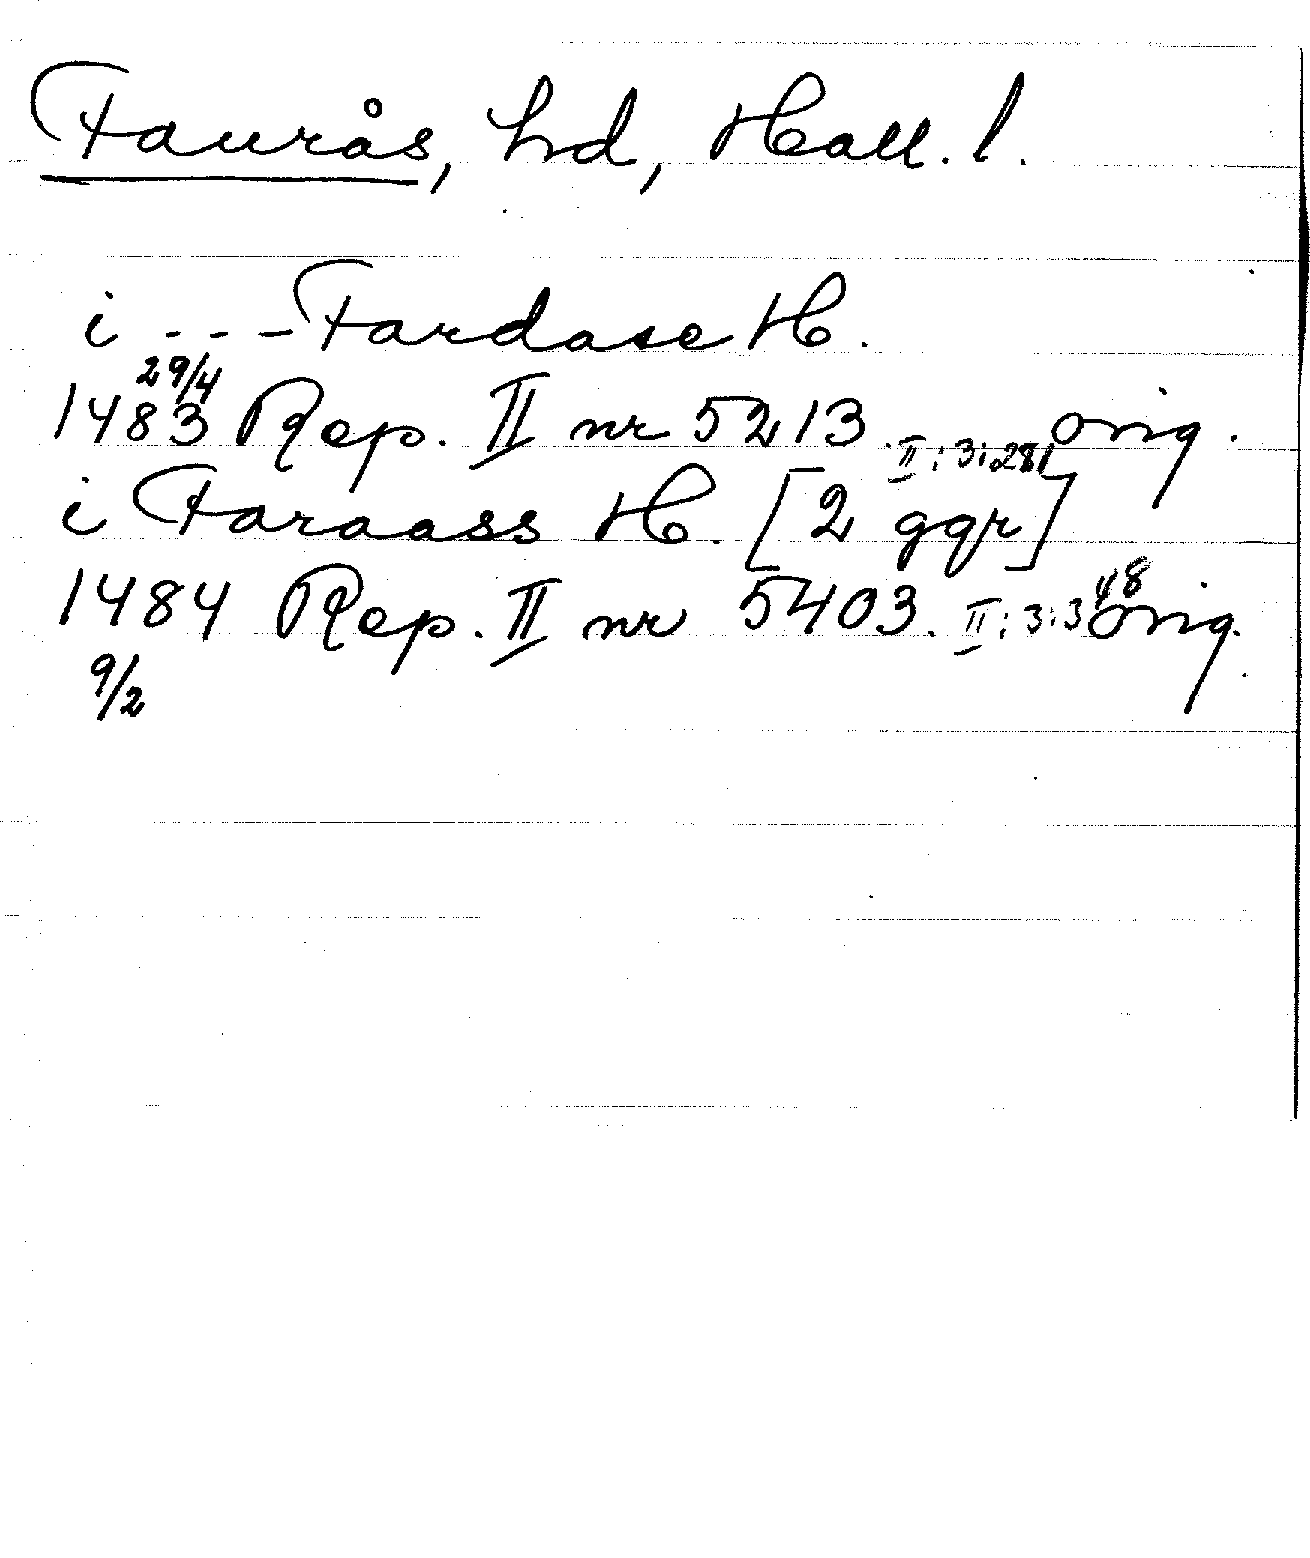 Faurås, hd, Hall. l.
i --- Fardase H.
29/4
1483 Rep. II nr 5213. II:3:281 orig.
i Faraass H. [2 ggr]
1484 Rep. II nr 5403. II:3:348 orig.
9/2